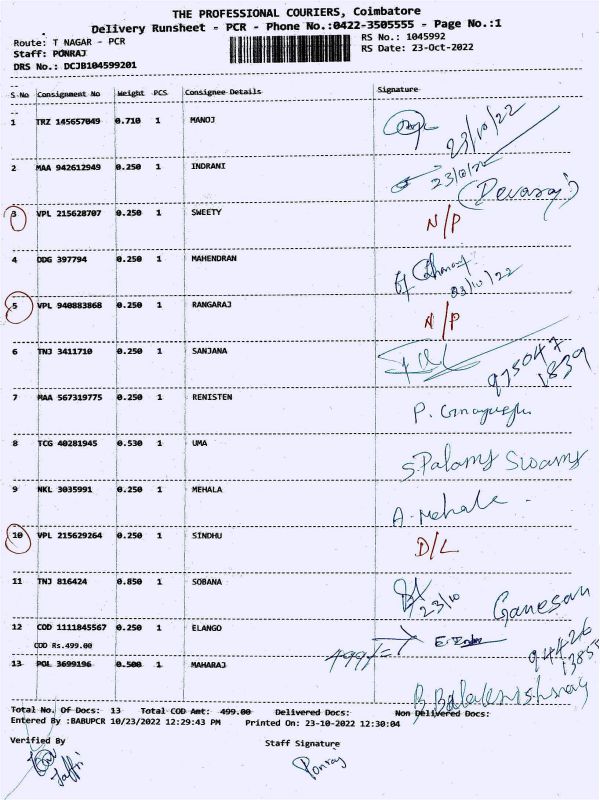 THE PROFESSIONAL COURIERS, Coimbatore
Delivery Runsheet - PCR - Phone No.:0422-3505555 - Page No.:1
Route: T NAGAR - PCR
RS No.: 1045992
Staff: PONRAJ
RS Date: 23-Oct-2022
DRS No.: DCJB104599201
S No Consignment No Weight PCS Consignee Details Signature
1 TRZ 145657049 0.710 1 MANOJ
23/10/22
2 MAA 942612949 0.250 1 INDRANI 23/10/22
(Devaraj)
3 VPL 215628707 0.250 1 SWEETY N/P
4 ODG 397794 0.250 1 MAHENDRAN
23/10/22
5 VPL 940883868 0.250 1 RANGARAJ N/P
6 TNJ 3411710 0.250 1 SANJANA 975047
1839
7 MAA 567319775 0.250 1 RENISTEN P.
8 TCG 40281945 0.530 1 UMA S. Palany Swamy
9 NKL 3035991 0.250 1 MEHALA A. Mehala
10 VPL 215629264 0.250 1 SINDHU D/L
11 TNJ 816424 0.850 1 SOBANA 23/10 Ganesan
12 COD 1111845567 0.250 1 ELANGO
COD Rs.499.00 499/= 94426
1385
13 POL 3699196 0.500 1 MAHARAJ B. Balakrishnag
Total No. Of Docs: 13 Total COD Amt: 499.00 Delivered Docs: Non Delivered Docs:
Entered By :BABUPCR 10/23/2022 12:29:43 PM Printed On: 23-10-2022 12:30:04
Verified By Staff Signature
Jaffri Ponraj